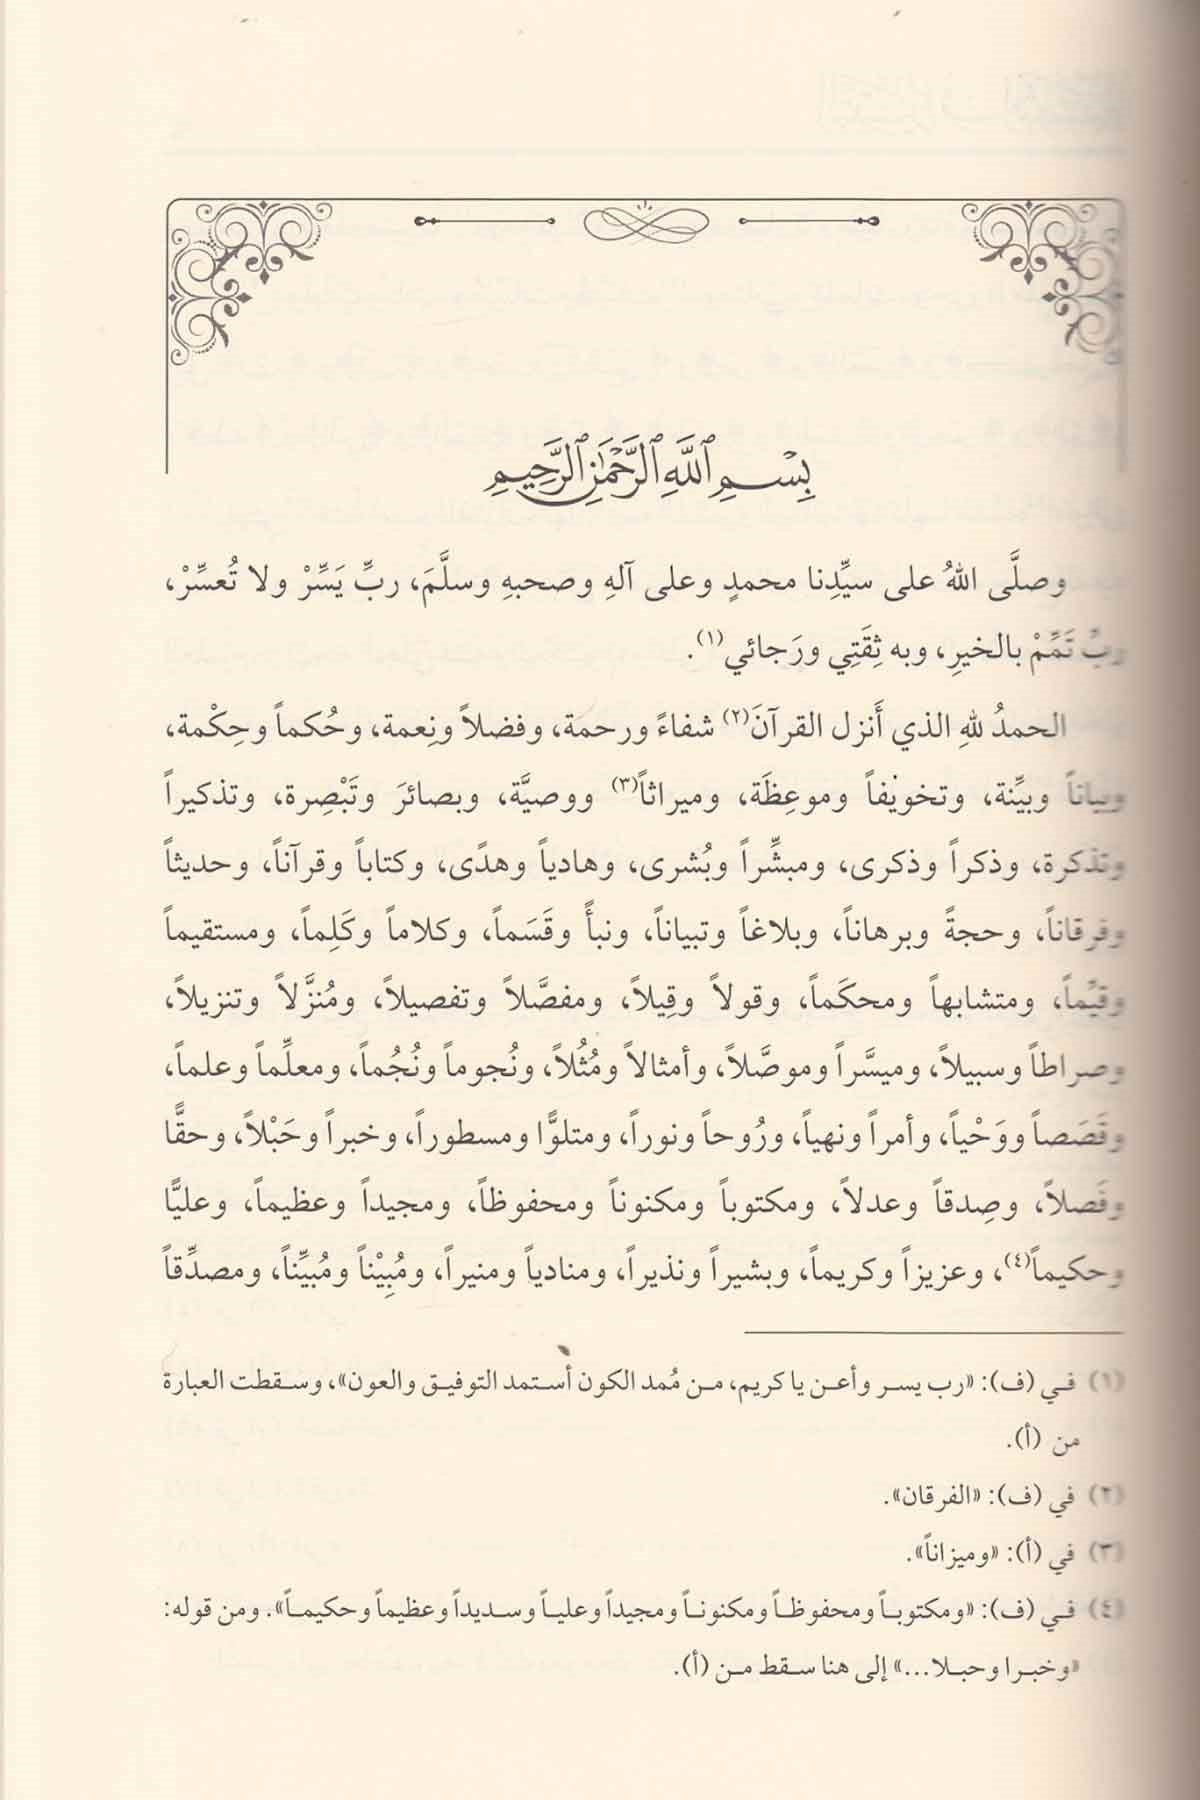 بِسْمِ ٱللَّهِ ٱلرَّحْمَٰنِ ٱلرَّحِيمِ
وصلَّى اللهُ على سيِّدِنا محمدٍ وعلى آلهِ وصحبهِ وسلَّمَ، ربِّ يَسِّرْ ولا تُعسِّرْ،
ربِّ تَمِّمْ بالخيرِ، وبه ثِقَتِي ورَجائي(١).
الحمدُ للهِ الذي أَنزل القرآنَ(٢) شفاءً ورحمة، وفضلاً ونِعمة، وحُكماً وحِكْمة،
وبياناً وبيِّنة، وتخويْفاً وموعِظَة، وميراثاً(٣) ووصيَّة، وبصائرَ وتَبْصِرة، وتذكيراً
وتذكرة، وذكراً وذكرى، ومبشِّراً وبُشرى، وهادياً وهدًى، وكتاباً وقرآناً، وحديثاً
وفرقاناً، وحجةً وبرهاناً، وبلاغاً وتبياناً، ونبأً وقَسَماً، وكلاماً وكَلِماً، ومستقيماً
وقيِّماً، ومتشابهاً ومحكَماً، وقولاً وقِيلاً، ومفصَّلاً وتفصيلاً، ومُنزَّلاً وتنزيلاً،
وصراطاً وسبيلاً، وميسَّراً وموصَّلاً، وأمثالاً ومُثُلاً، ونُجوماً ونُجُماً، ومعلِّماً وعلما،
وقَصَصاً ووَحْياً، وأمراً ونهياً، ورُوحاً ونوراً، ومتلوًّا ومسطوراً، وخبراً وحَبْلاً، وحقًّا
وفَصلاً، وصِدقاً وعدلاً، ومكتوباً ومكنوناً ومحفوظاً، ومجيداً وعظيماً، وعليًّا
وحكيماً(٤)، وعزيزاً وكريماً، وبشيراً ونذيراً، ومنادياً ومنيراً، ومُبِيْناً ومُبيِّناً، ومصدِّقاً
(١) في (ف): «رب يسر وأعن يا كريم، من مُمد الكون أستمد التوفيق والعون»، وسقطت العبارة
من (أ).
(٢) في (ف): «الفرقان».
(٣) في (أ): «وميزاناً».
(٤) في (ف): «ومكتوباً ومحفوظاً ومكنوناً ومجيداً وعلياً وسديداً وعظيماً وحكيماً». ومن قوله:
«وخبرا وحبلا...» إلى هنا سقط من (أ).